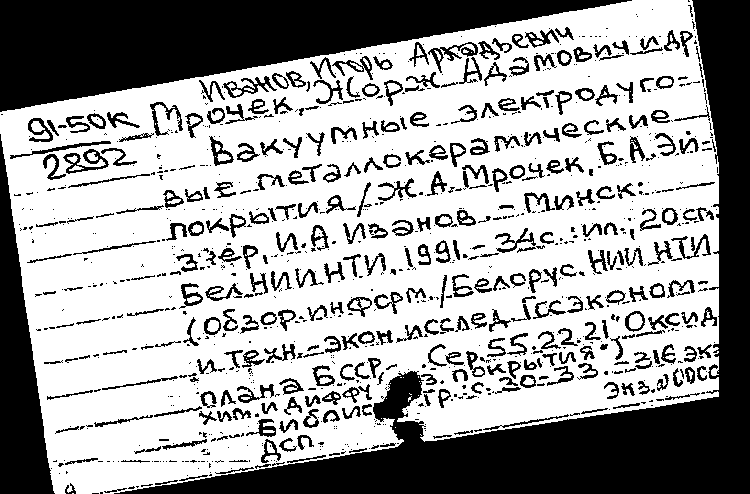 Иванов, Игорь Аркадьевич
91-50к Мрочек, Жорж Адамович и др
2892 Вакуумные электродуго=
вые металлокерамические
покрытия / Ж.А. Мрочек, Б.А. Эй=
ззер, И.А. Иванов. - Минск:
БелНИИНТИ, 1991. - 34с. : ил.; 20см.
(Обзор. информ. / Белорус. НИИ НТИ
и техн. - экон. исслед. Госэконом=
плана БССР. Сер. 55.22.21 "Оксид
хим. и диффу з. покрытия")
Библиогр.: с. 30-33. - 316 экз
ДСП. Экз. №